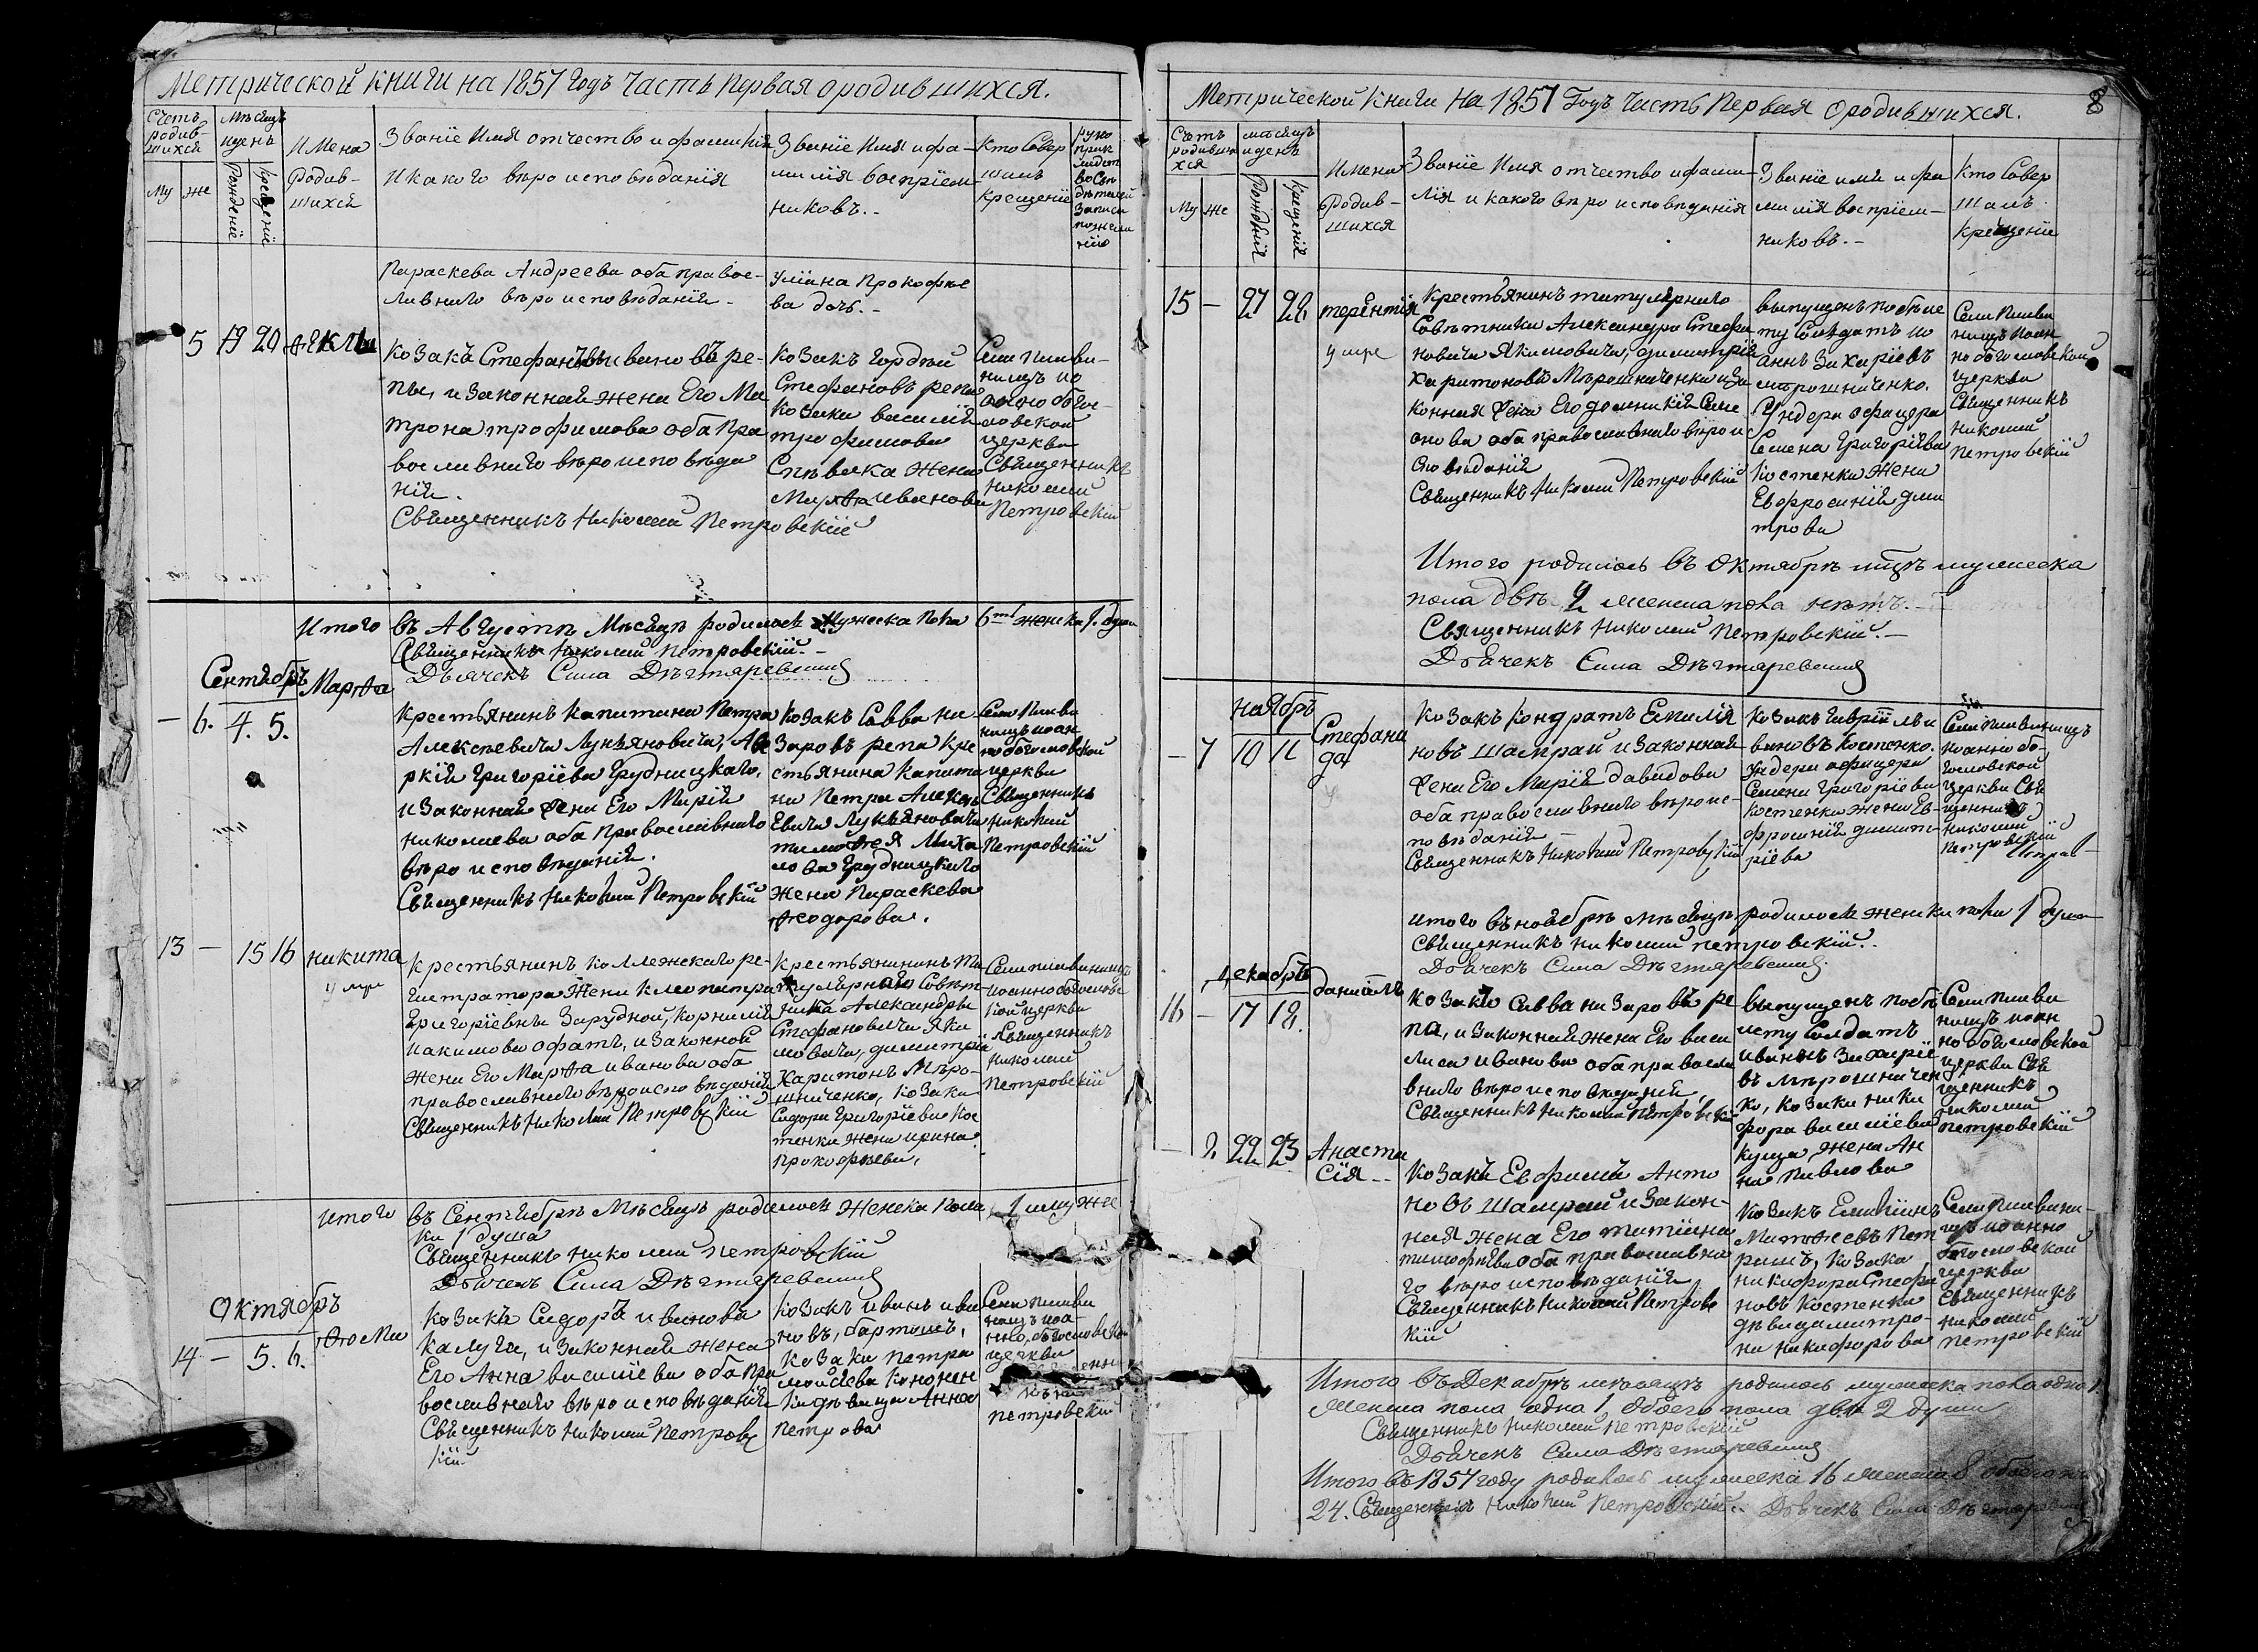 Метрической книги на 1857 Годъ Часть Первая о родившихся.
Счетъ родив-шихся
Мѣсяцъ и день
Му же
Рожденіе
Крещеніе
Имена
Родив-
шихся
Званіе Имя отчество и фамилія
И какого вѣро исповѣданія
Званіе Имя и фа-
милія воспріем-
никовъ.-
Кто Совер
шалъ
Крещеніе
Параскева Андреева оба право-
славнаго вѣро исповѣданія -
Уліана Прокофье
ва дочь.-
5 19 20 Ѳекла
Козакъ Стефанъ Ивановъ Ре-
па, и Законная жена Его Ма
трона трофимова оба Пра
вославнаго вѣро исповѣда
нія.
Священникъ Николай Петровскій
Козакъ Гордѣй
Стефановъ репа
Козака василія
трофимова
Спѣвака жена
Марѳа Иванова
Семипляви-
ницъ Іо
анно богос-
ловской
церкви
Священникъ
Николай
Петровскій
Итого въ Августѣ Мѣсяцѣ родилось Мужеска Пола 6ть женска 1. душа
Священникъ Николай Петровскій.-
Дьячекъ Сила Дѣгтяревскій
Сентябрь
- 6. 4. 5.
Марѳа
Крестьянинъ Капитана Петра
Алексѣевича Лукьяновича, Ава
ркій Григоріева Грудницкаго,
И Законная жена Его Марія
Николаева оба Православнаго
вѣро исповѣданія.
Священникъ Николай Петровскій
Козакъ Савва На
заровъ репа Кре
стьянина Капита
на Петра Алексѣ
Евича Лукьяновича
тимоѳея Миха
лова Грудницкаго
Жена Параскева
Ѳеодорова.
Семиплява
ницъ Іоан
но богословской
церкви
Священникъ
Николай
Петровскій
13 - 15 16 Никита
умре
Крестьянинъ коллежскаго ре-
гистратора Жены Клеопатры
Григоріевны Зарудной, Корнилій
Іакимова офатъ, и Законной
жены Его Марѳа иванова оба
православнаго вѣро исповѣданія
Священникъ Николай Петровскій
Крестьянинъ Ти
тулярнаго Совѣт-
ника Александра
Стефановича Яки
мовича, димитрій
Харитонъ Мѣро-
шниченко, Козака
Сидора Григоріева Кос
тенка жена ирина
Прокофьева.
Семиплявиницъ
Іоанно богословс
кой церкви
Священникъ
Николай
Петровскій
Итого въ Сентябрѣ Мѣсяцѣ родилось Женска Пола 1 и муже
ка 1 душа
Священникъ Николай Петровскій
Дьячекъ Сила Дѣгтяревскій
Октябрь
14 - 5. 6. Ѳома
Козакъ Сидоръ иванова
Калуга, и Законная жена
Его Анна василіева оба Пра
вославнаго вѣро исповѣданія
Священникъ Николай Петровс
кій.
Козакъ иванъ ива
новъ, бартошъ,
Козака петра
моисѣева Кононен
ка дѣвица Анна
Петрова
Семиплява
ницъ Іоа-
нно, богословской
церкви
Петровскій
Метрической Книги На 1857 Годъ Часть Первая о родившихся. 8
Счетъ
родивши
хся
мѣсяцъ
и день
Му же
Рожденіе
Крещеніе
Имена
Родив-
шихся
Званіе Имя отчество и фами-
лія и какого вѣро исповѣданія
Званіе имя и фа
милія воспріем-
никовъ.-
Кто Совер
шалъ
Крещеніе
15 - 27 28 терентій
умре
Крестьянинъ титулярнаго
Совѣтника Александра Стефа
новича Якимовича, димитрій
Харитоновъ Мѣрошниченко и За
конная жена Его доминикія Симе
онова оба православнаго вѣро и
сповѣданія
Священникъ Николай Петровскій
выпущенъ по биле
ту Солдатъ Іо
аннъ Захаріевъ
мѣрошниченко.
Ундера офицера
Семена Григоріева
Костенка Жена
Евфросинія дми
трова
Семиплява
ницъ Іоан
но богословской
церкви
Священникъ
Николай
Петровскій
Итого родилось въ Октябрѣ мѣцѣ мужеска
пола двѣ 2 женска пола нѣтъ.-
Священникъ Николай Петровскій.-
Дьячекъ Сила Дѣгтяревскій
Ноябрь
- 7 10 11 Стефани
да
Козакъ Кондратъ Емилія
новъ Шамрай и Законная
жена Его Марія давидова
оба православнаго вѣро ис-
повѣданія
Священникъ Николай Петровскій
Козакъ Гаврiилъ и
вановъ Костенко.
Ундера офицера
Семена Григоріева
Костенка жена Ев-
фросинія димит-
ріева
Семиплявиницъ
Іоанно бо-
гословской
церкви Свя
щенникъ
Николай
Петровскій
Итого въ ноябрѣ мѣсяцѣ родилось женска пола 1 душа
Священникъ Николай Петровскій..
Дьячекъ Сила Дѣгтяревскій.
декабрь
16 - 17 18. даніилъ
Козакъ Савва назаровъ Ре
па, и Законная жена Его васи
лиса иванова оба правосла
внаго вѣро исповѣданія,
Священникъ Николай Петровскій
Выпущенъ по би
лету Солдатъ
иванъ Захаріе
въ мѣрошничен
ко, Козака Ники
фора василіева
куца, жена Ан
на Павлова
Семиплява
ницъ Іоан
но богословской
церкви Свя
щенникъ
Николай
Петровскій
- 8 22 23 Анаста
сія -
Козакъ Евфимъ Анто
новъ Шамрай и Закон-
ная жена Его татіана
тимофѣева оба православна
го вѣро исповѣданія
Священникъ Николай Петровс
кій
Козакъ Емиліанъ
Матѳеевъ Пет
рашъ, Козака
Никифора Стефа
новъ Костенка
дѣвица митро-
на Никифорова
Семиплявини-
цъ Іоанно
богословской
церкви
Священникъ
Николай
Петровскій
Итого въ Декабрѣ мѣсяцѣ родилось мужеска пола одна 1
женска пола одна 1. Обоего пола двѣ 2 души
Священникъ Николай Петровскій
Дьячекъ Сила Дѣгтяревскій
Итого въ 1857 году родилось мужеска 16 женска 8 обоего
24. Священникъ Николай Петровскій.. Дьячекъ Сила Дѣгтяревскій